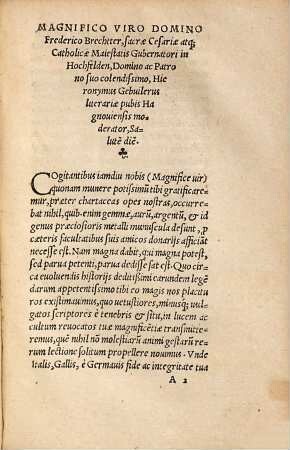 MAGNIFICO VIRO DOMINO
Frederico Brecheter, sacræ Cesariæ atq;
Catholicæ Maiestatis Gubernatori in
Hochfelden, Domino ac Patro
no suo colendissimo, Hie
ronymus Gebuilerus
literariæ pubis Ha
gnouiensis mo
derator, Sa-
lutē dic̄.
COgitantibus iamdiu nobis (Magnifice uir)
quonam munere potissimū tibi gratificare-
mur, præter chartaceas opes nostras, occurre-
bat nihil, quib. enim gemmæ, aurū, argentū, & id
genus præciosioris metalli munuscula desunt, p
cæteris facultatibus suis amicos donarijs afficiāt
necesse est. Nam magna dabit, qui magna potest,
sed parua petenti, parua dedisse sat est. Quo cir
ca euoluendis historijs deditißimi earundem legen
darum appetentißimo tibi eo magis nos placitu
ros existimauimus, quo uetustiores, minusq; uul
gatos scriptores è tenebris & situ, in lucem ac
cultum reuocatos tuæ magnificētiæ transmitte-
remus, quē nihil nō molestiarū animi gestarū re-
rum lectione solitum propellere nouimus. Vnde
Italis, Gallis, & Germanis fide ac integritate tua
A 2